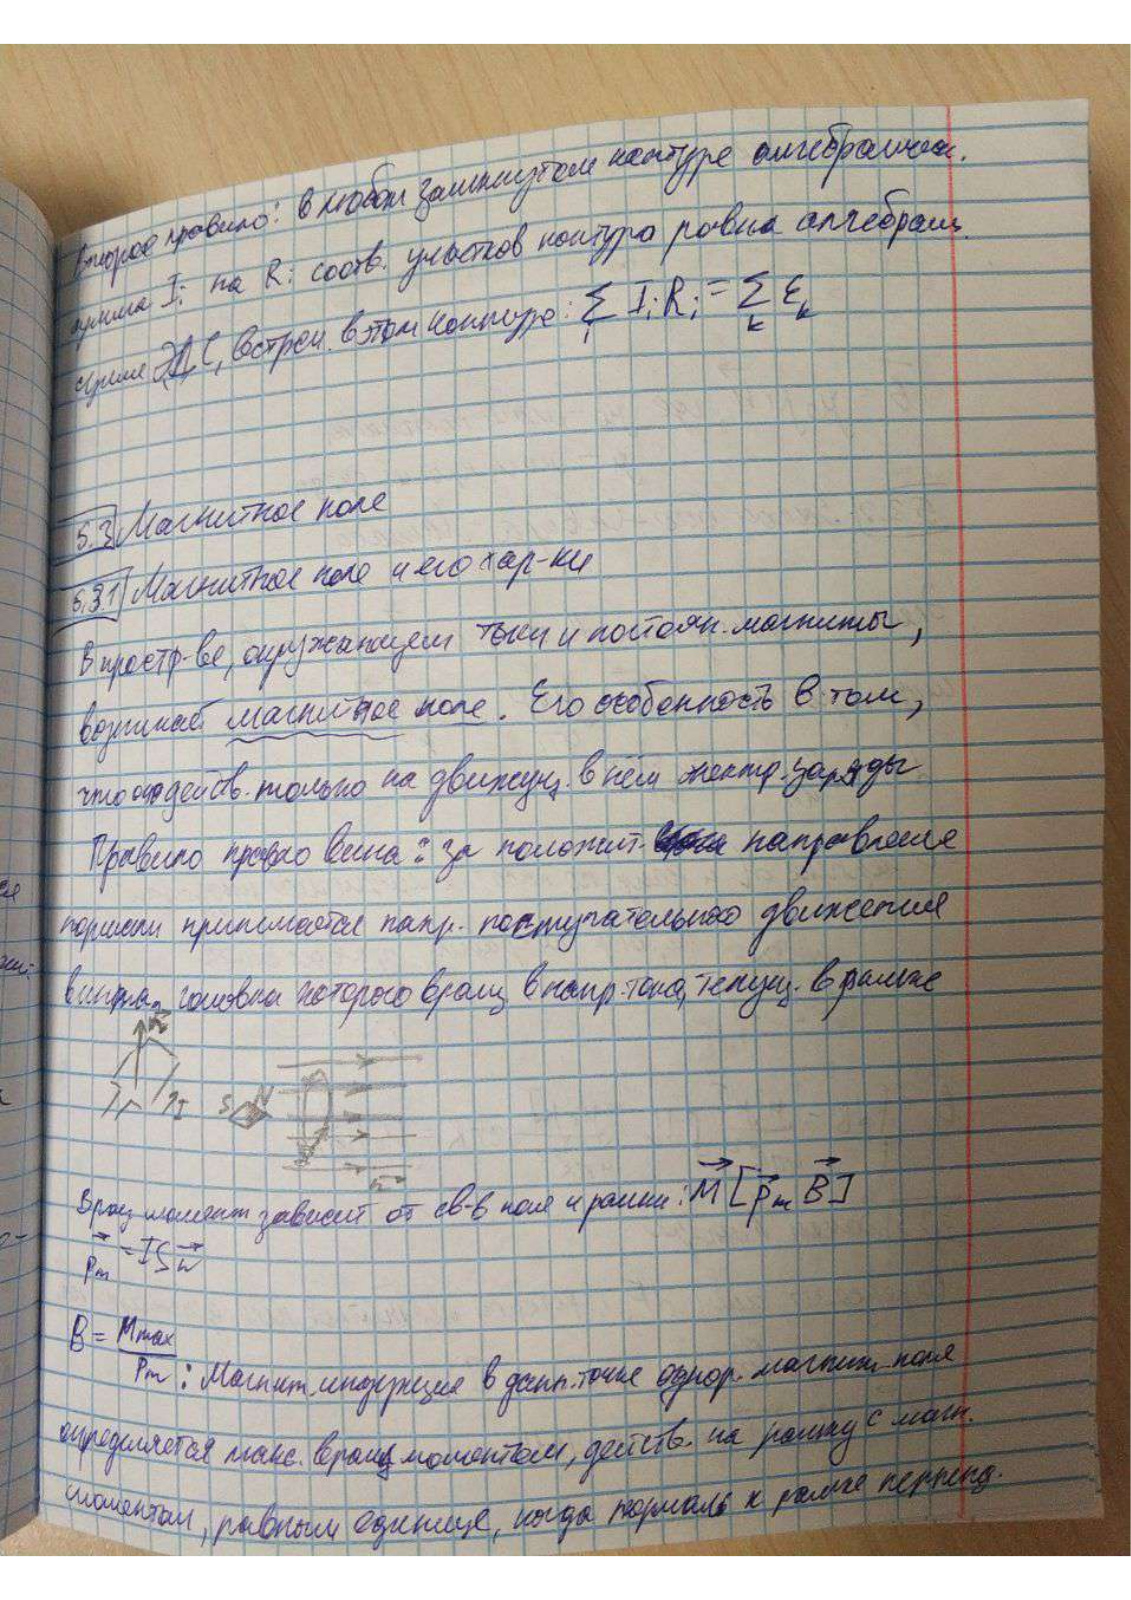 Второе правило: в любом замкнутом контуре алгебраическ.
сумма I_i на R_i соотв. участков контура равна алгебраич.
сумме ЭДС, встреч. в этом контуре: ∑_i I_i R_i = ∑_k ε_k
5.3 Магнитное поле
5.3.1 Магнитное поле и его хар-ки
В простр-ве, окружающем токи и постоян. магниты,
возникает магнитное поле. Его особенность в том,
что оно действ. только на движущ. в нём электр. заряды
Правило правого винта: за положит. направление
нормали принимается напр. поступательного движения
винта, головка которого вращ. в напр. тока, текущ. в рамке
n
I
S N
n
Вращ. момент зависит от св-в поля и рамки: M⃗ [p⃗_m B⃗]
p⃗_m = IS n⃗
B = M_max / P_m : Магнит. индукция в данн. точке однор. магнит. поля
определяется макс. вращ. моментом, действ. на рамку с магн.
моментом, равным единице, когда нормаль к рамке перпенд.